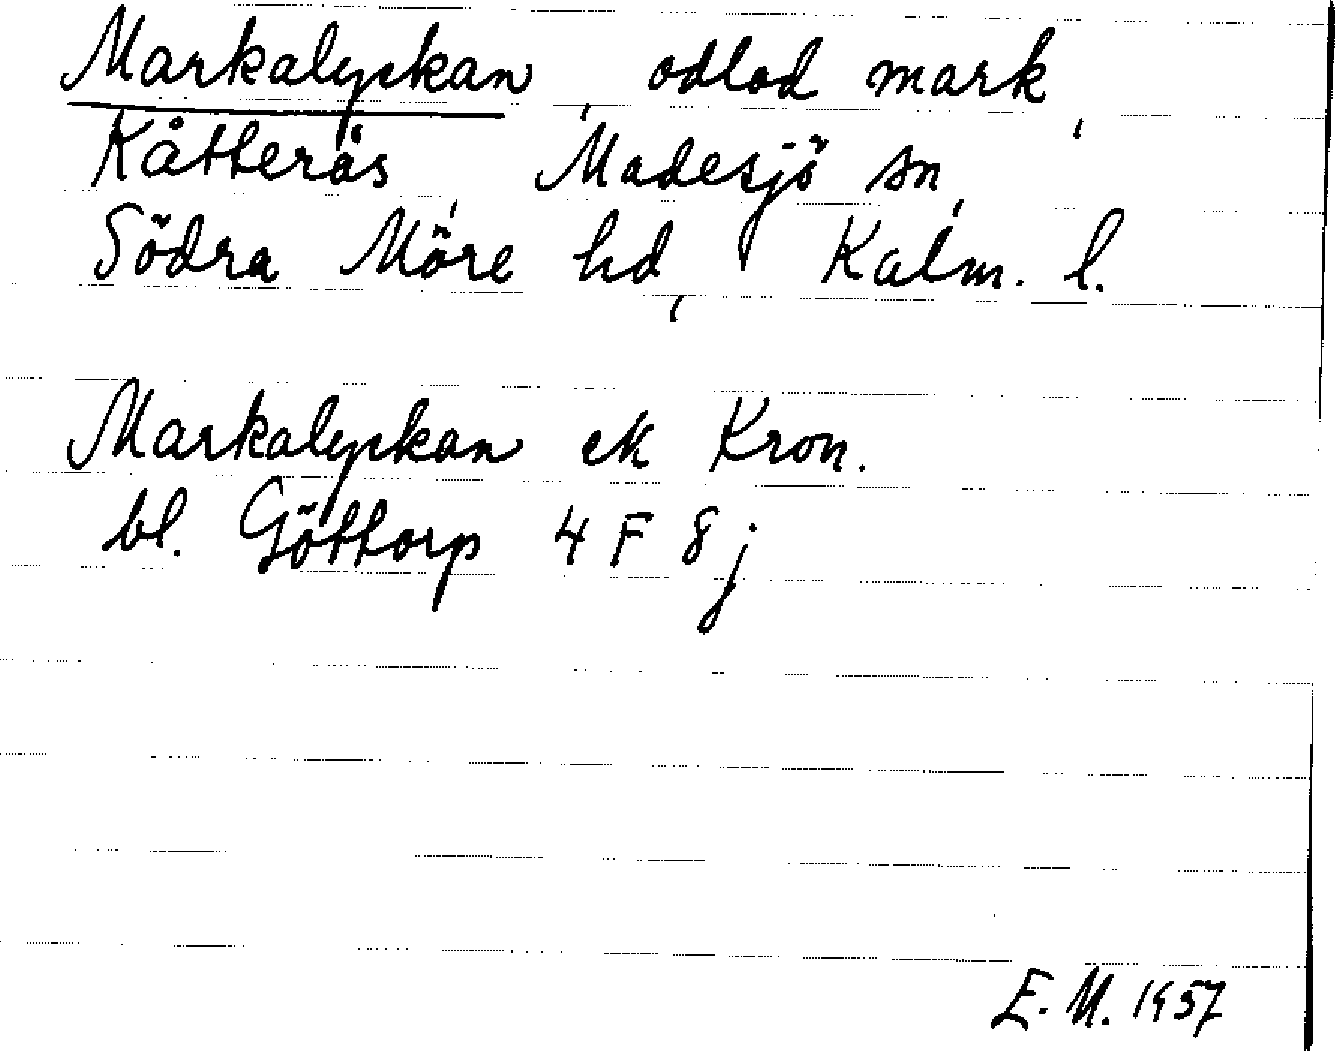 Markalyckan, odlad mark,
Kåtterås, Madesjö sn,
Södra Möre hd, Kalm. l.
Markalyckan ek Kron.
bl. Göttorp 4 F 8 j
E. M. 1957